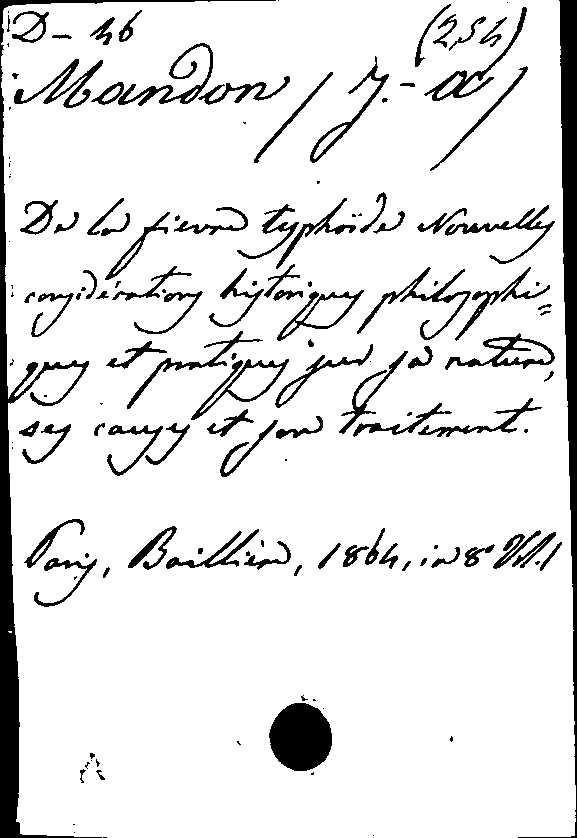 D – 46 (254)
Mandon / J.-A /
De la fievre typhoïde Nouvelles
considérations historiques philosophi=
ques et pratiques sur sa nature,
ses causes et son traitement.
Paris, Baillière, 1864, in 8° Vol. 1
A